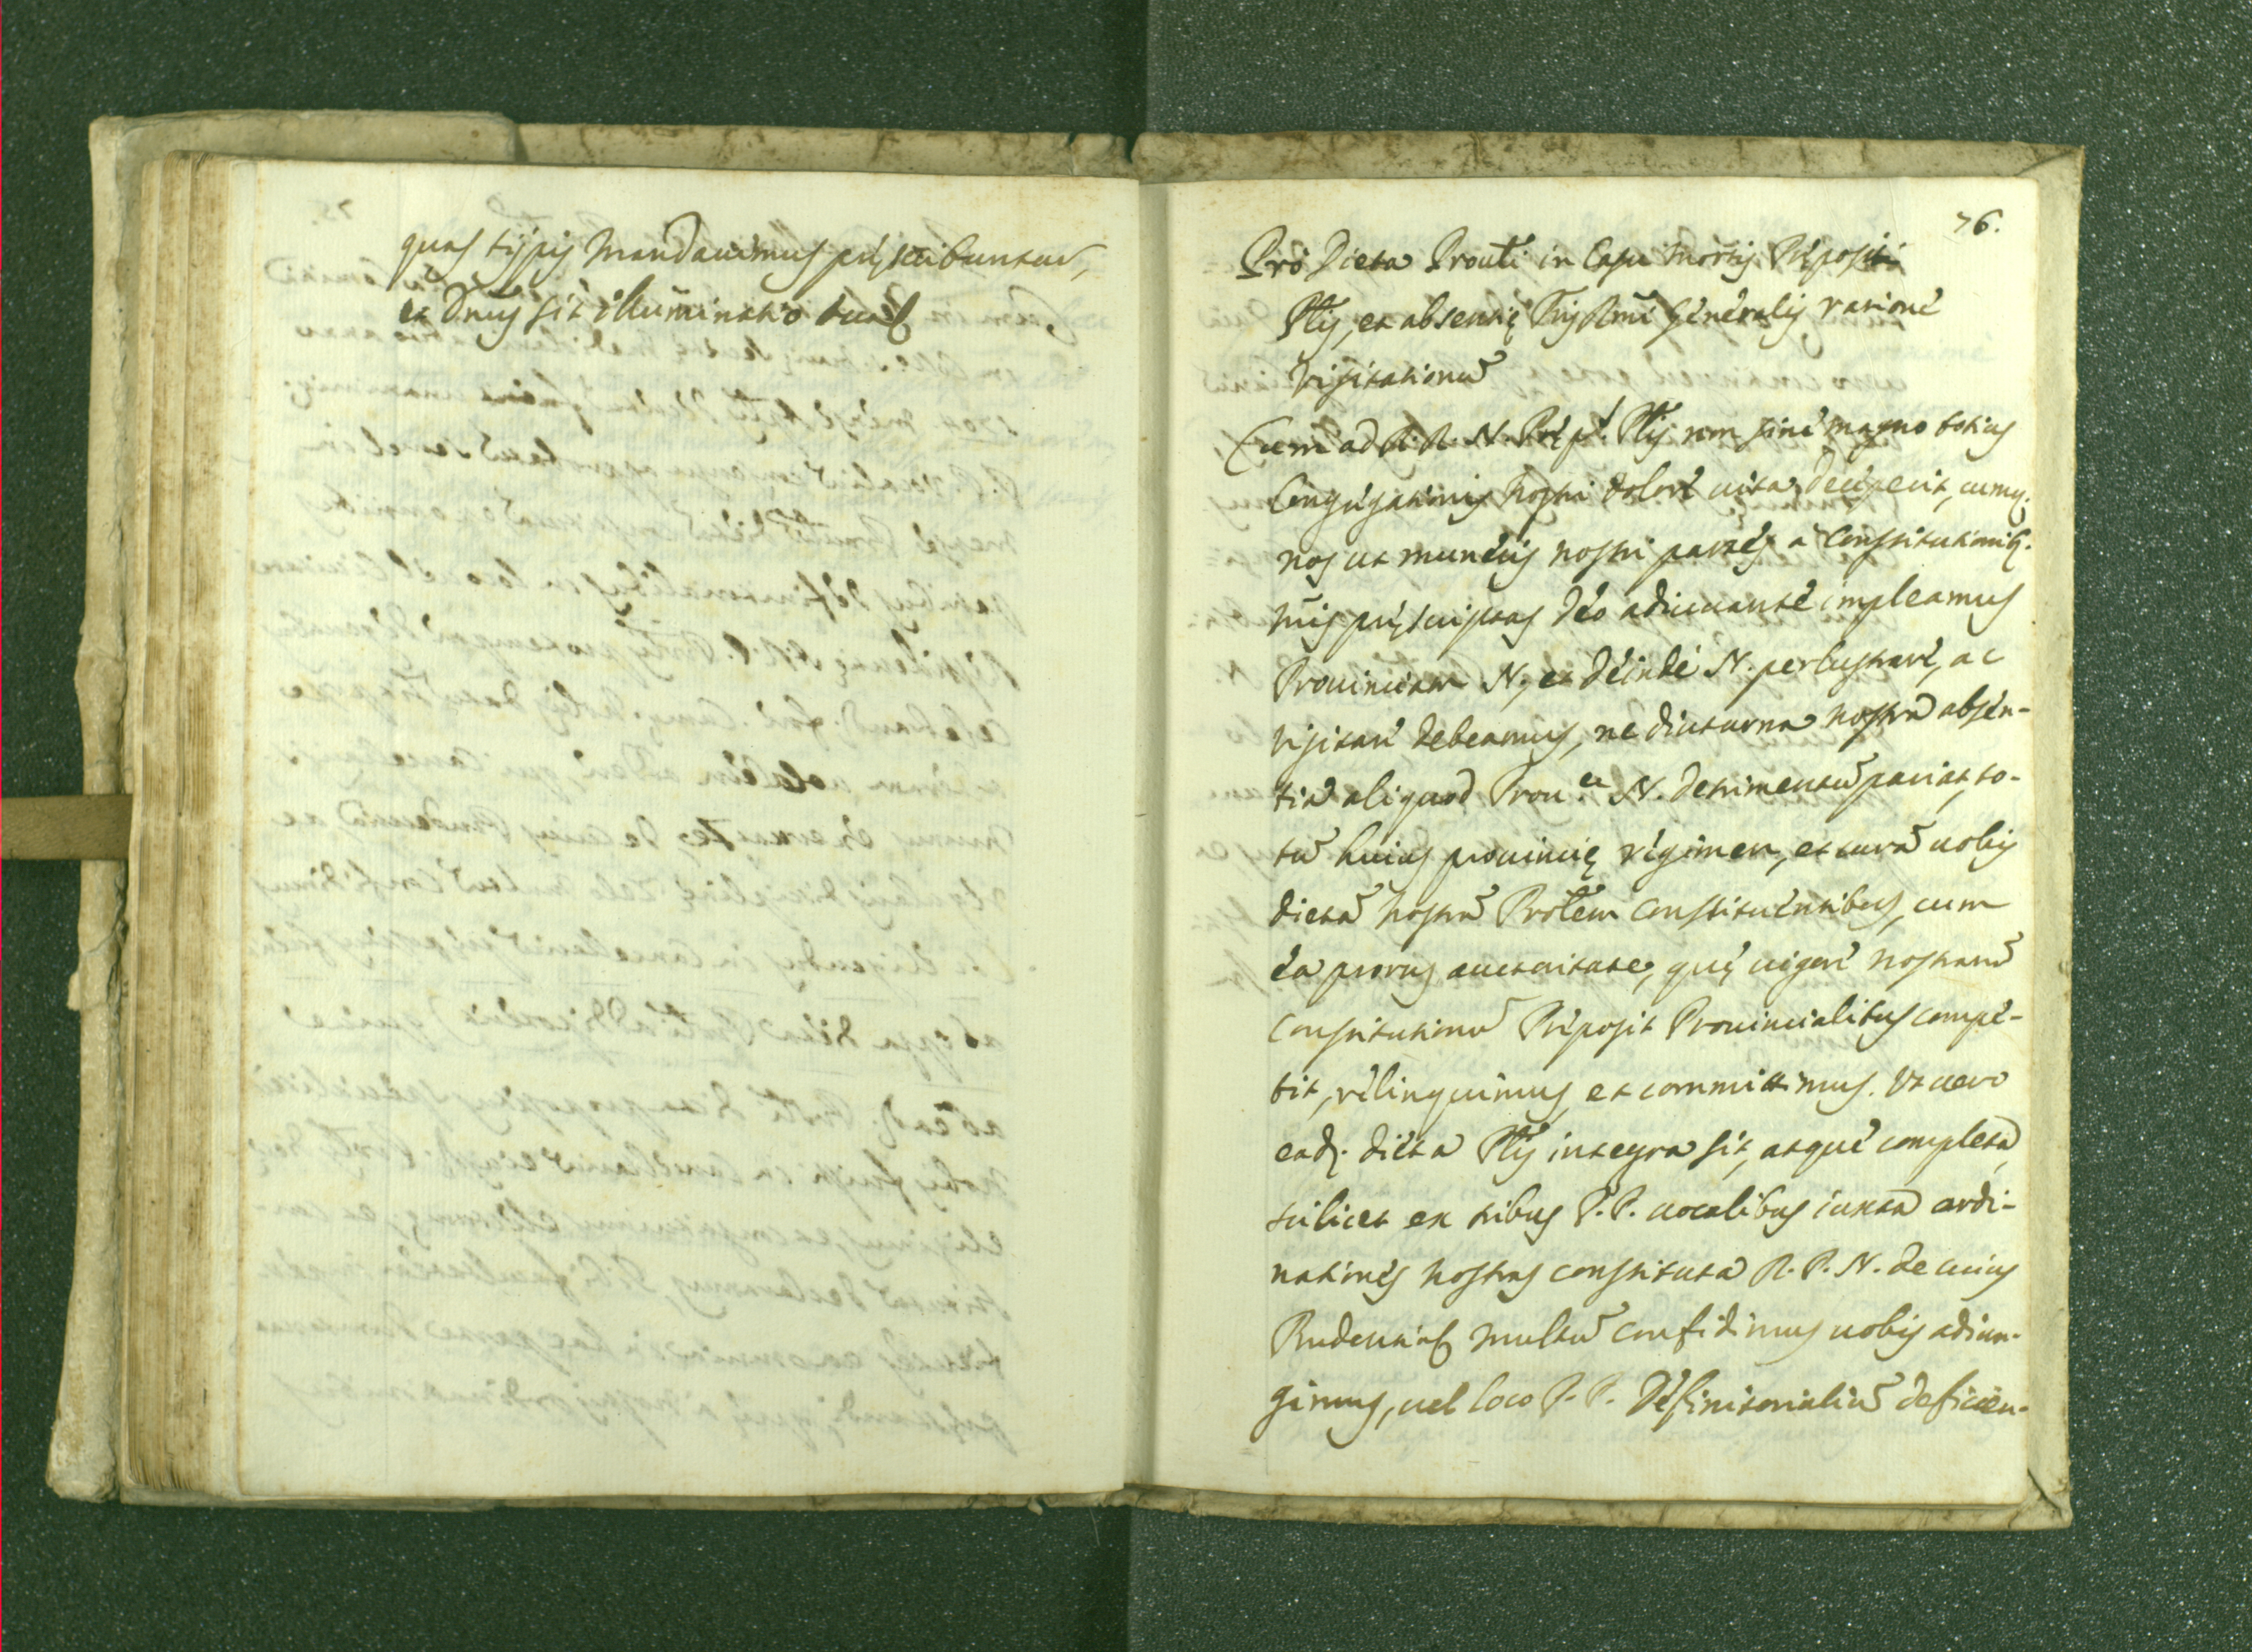 quas typis mandauimus pręscribuntur,
et Dñus sit illuminatio tua
76.
Pro Dieta Prouli in Casu mortis Prępositi
Plis, et absentię Rmi Generalis ratione
visitationũ
Cum ad R. N. Pręp.ti Plis non sine magno totius
Congregationis nostri dolore uita decęserit, cumq.
nos ut muneris nostri partes a Constitutionib.
nris pręscriptas Deo adiuuante impleamus
Prouinciam N, et deinde N. perlustrare, ac
visitare debeamus, ne diuturna nostra absen-
tia aliquod Prou.ę N. detrimentũ pariat, to-
tũ huius prouincię regimen, et curã uobis
dietã nostrã Prolem constituentibus, cum
ea prorus auctoritate, quę uigore nostrarũ
Constitutionũ Pręposit Prouincialibus compe-
tit, relinquimus, et committimus. Ut uero
ead. dieta Plis integra sit, atque completa,
scilicet ex tribus P.P. uocalibus iuxta ordi-
nationes nostras constituta R. P. N. de cuius
Prudentia multũ confidimus uobis adiun-
gimus, uel loco P. P. Definitorialiũ deficien-